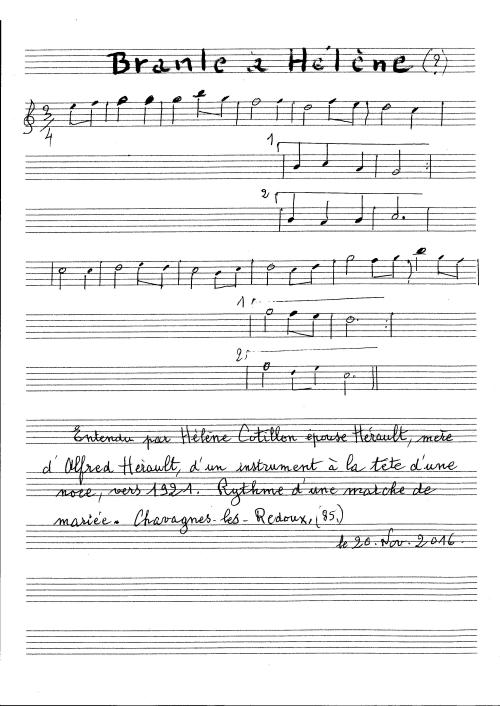 Branle à Hélène (?)
3
4
1
2
1
2
Entendu par Hélène Cotillon épouse Hérault, mère
d'Alfred Hérault, d'un instrument à la tête d'une
noce, vers 1921. Rythme d'une marche de
mariée. Chavagnes-les-Redoux, (85.)
le 20. Nov. 2016.